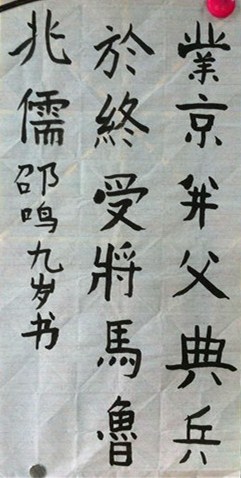 業京弁父典兵
於終受將馬魯
兆儒邵鸣九岁书